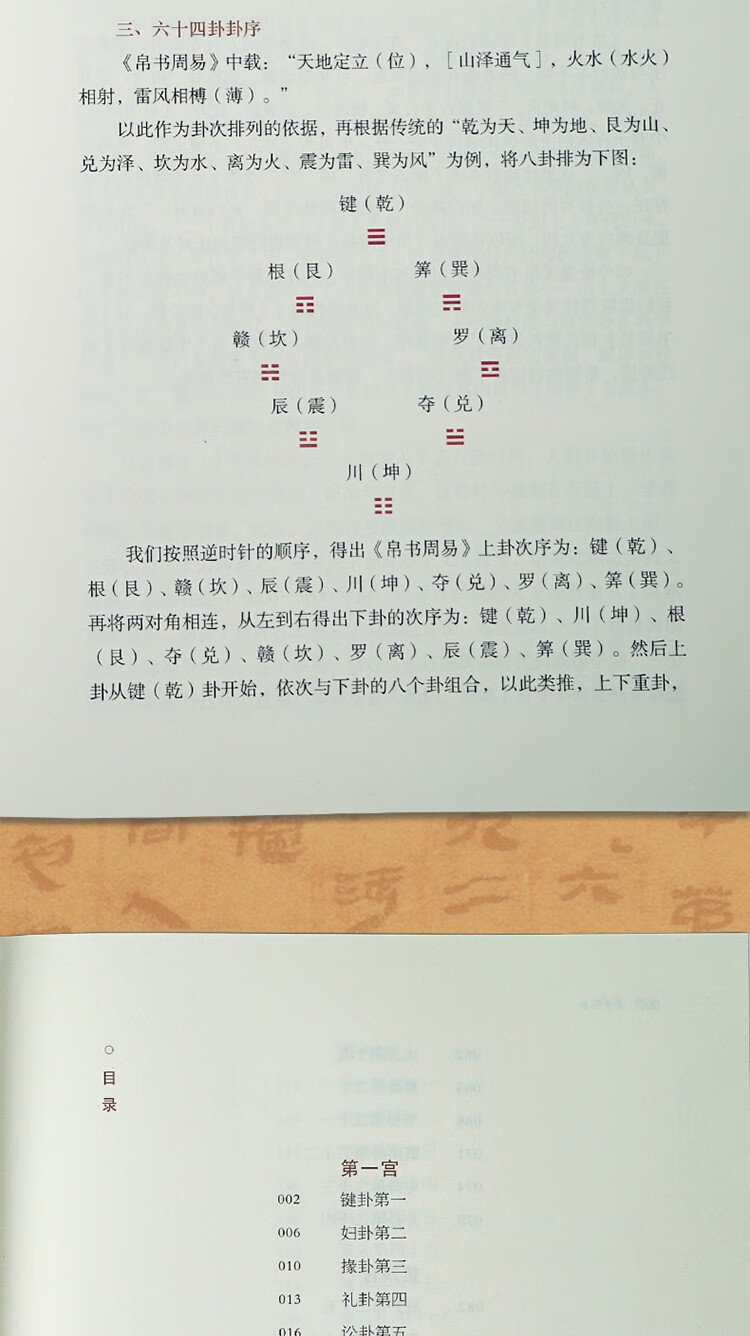 三、六十四卦卦序
《帛书周易》中载：“天地定立（位），［山泽通气］，火水（水火）
相射，雷风相榑（薄）。”
以此作为卦次排列的依据，再根据传统的“乾为天、坤为地、艮为山、
兑为泽、坎为水、离为火、震为雷、巽为风”为例，将八卦排为下图：
键（乾）
根（艮） 筭（巽）
赣（坎） 罗（离）
辰（震） 夺（兑）
川（坤）
我们按照逆时针的顺序，得出《帛书周易》上卦次序为：键（乾）、
根（艮）、赣（坎）、辰（震）、川（坤）、夺（兑）、罗（离）、筭（巽）。
再将两对角相连，从左到右得出下卦的次序为：键（乾）、川（坤）、根
（艮）、夺（兑）、赣（坎）、罗（离）、辰（震）、筭（巽）。然后上
卦从键（乾）卦开始，依次与下卦的八个卦组合，以此类推，上下重卦，
目
录
第一宫
002 键卦第一
006 妇卦第二
010 掾卦第三
013 礼卦第四
016 讼卦第五